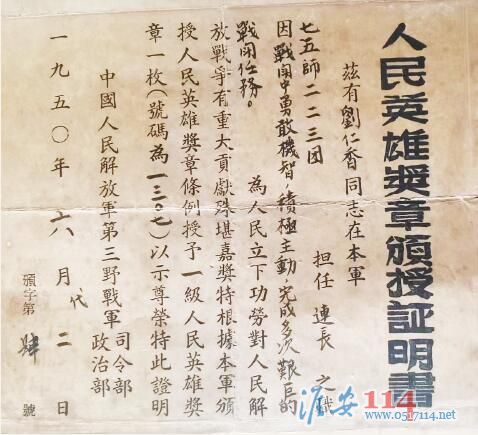 人民英雄獎章頒授証明書
茲有劉仁香同志在本軍
七五師二二三团 担任 連長 之職
因戰鬥中勇敢機智，積極主動，完成多次艱巨的
戰鬥任務。 為人民立下功勞對人民解
放戰爭有重大貢獻殊堪嘉獎特根據本軍頒
授人民英雄獎章條例授予一級人民英雄獎
章一枚(號碼為一三〇七)以示尊榮特此證明
中國人民解放軍第三野戰軍 司令部
政治部
一九五〇年 六 月 二 日
頒字第 肆 號
淮安114
www.0517114.net